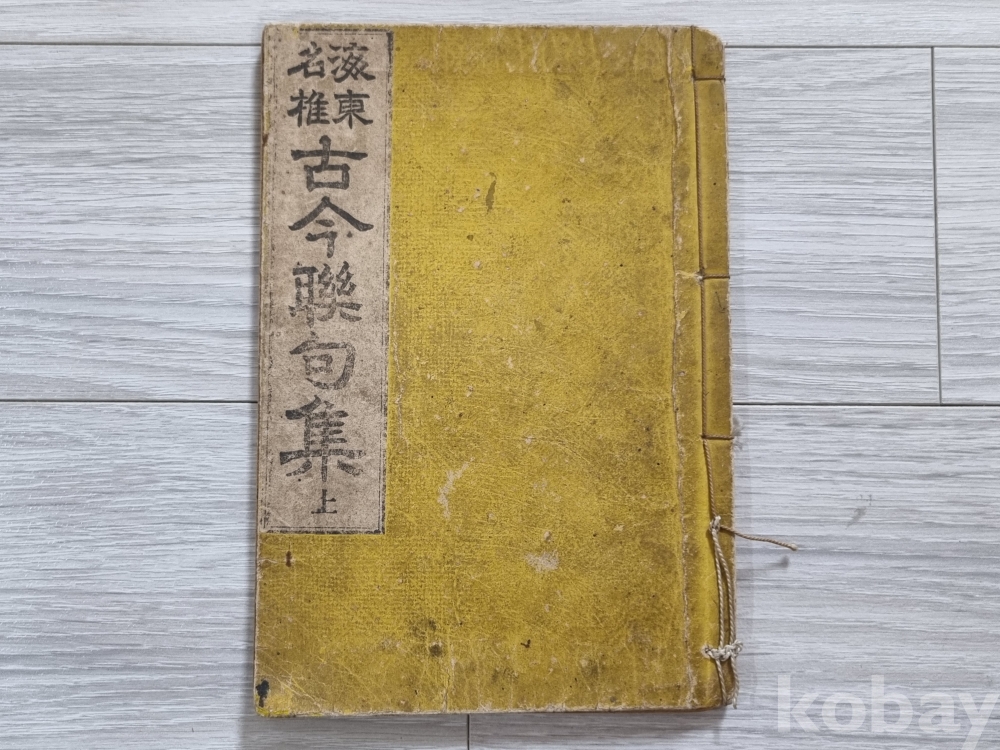 海東
名椎
古今聯句集 上
kobay